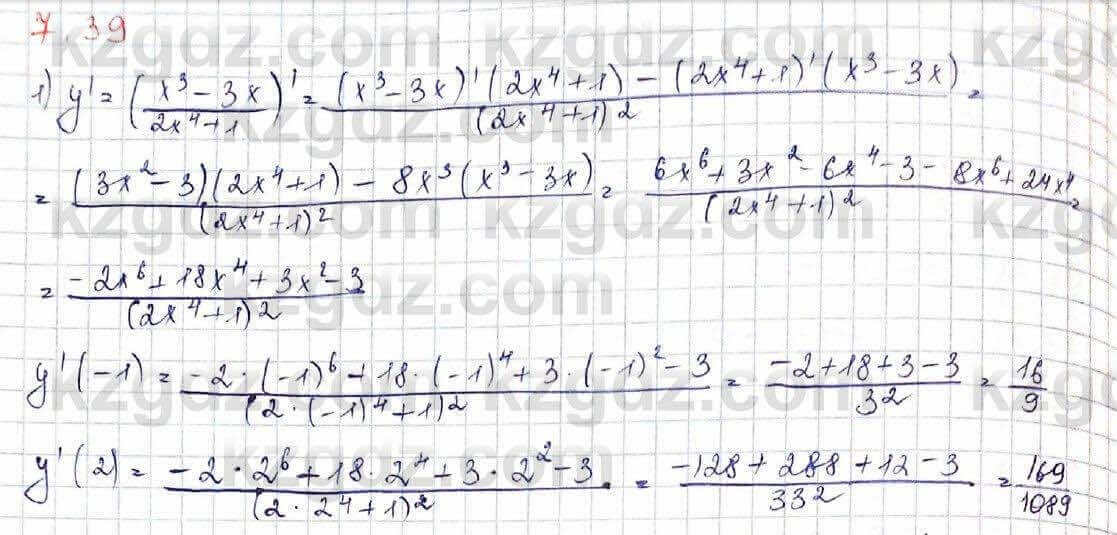 7.39
1) y' = ((x³ − 3x)/(2x⁴+1))' = ((x³ − 3x)'(2x⁴+1) − (2x⁴+1)'(x³ − 3x))/(2x⁴+1)² =
= ((3x² − 3)(2x⁴+1) − 8x³(x³ − 3x))/(2x⁴+1)² = (6x⁶ + 3x² − 6x⁴ − 3 − 8x⁶ + 24x⁴)/(2x⁴+1)² =
= (−2x⁶ + 18x⁴ + 3x² − 3)/(2x⁴+1)²
y'(−1) = (−2·(−1)⁶ + 18·(−1)⁴ + 3·(−1)² − 3)/(2·(−1)⁴+1)² = (−2+18+3−3)/3² = 16/9
y'(2) = (−2·2⁶ + 18·2⁴ + 3·2² − 3)/(2·2⁴+1)² = (−128 + 288 + 12 − 3)/33² = 169/1089
kzgdz.com